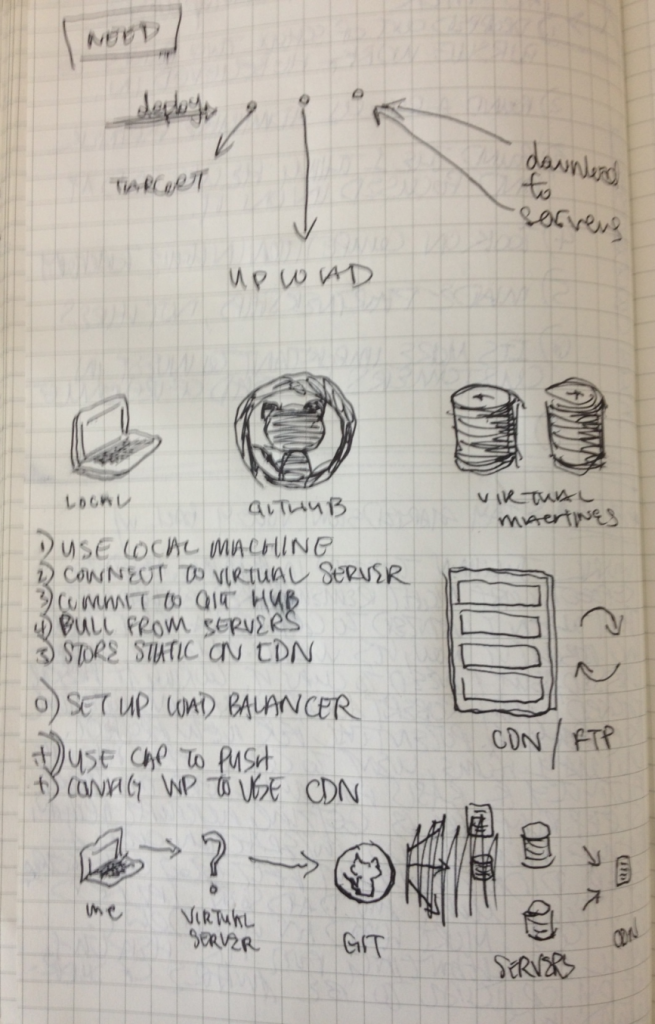 NEED
deploy
TARGET
UPLOAD
download
to
servers
LOCAL
GITHUB
VIRTUAL
MACHINES
1) USE LOCAL MACHINE
2) CONNECT TO VIRTUAL SERVER
3) COMMIT TO GIT HUB
4) PULL FROM SERVERS
5) STORE STATIC ON CDN
0) SET UP LOAD BALANCER
+) USE CAP TO PUSH
+) CONFIG WP TO USE CDN
CDN / FTP
me
?
VIRTUAL
SERVER
GIT
SERVERS
CDN